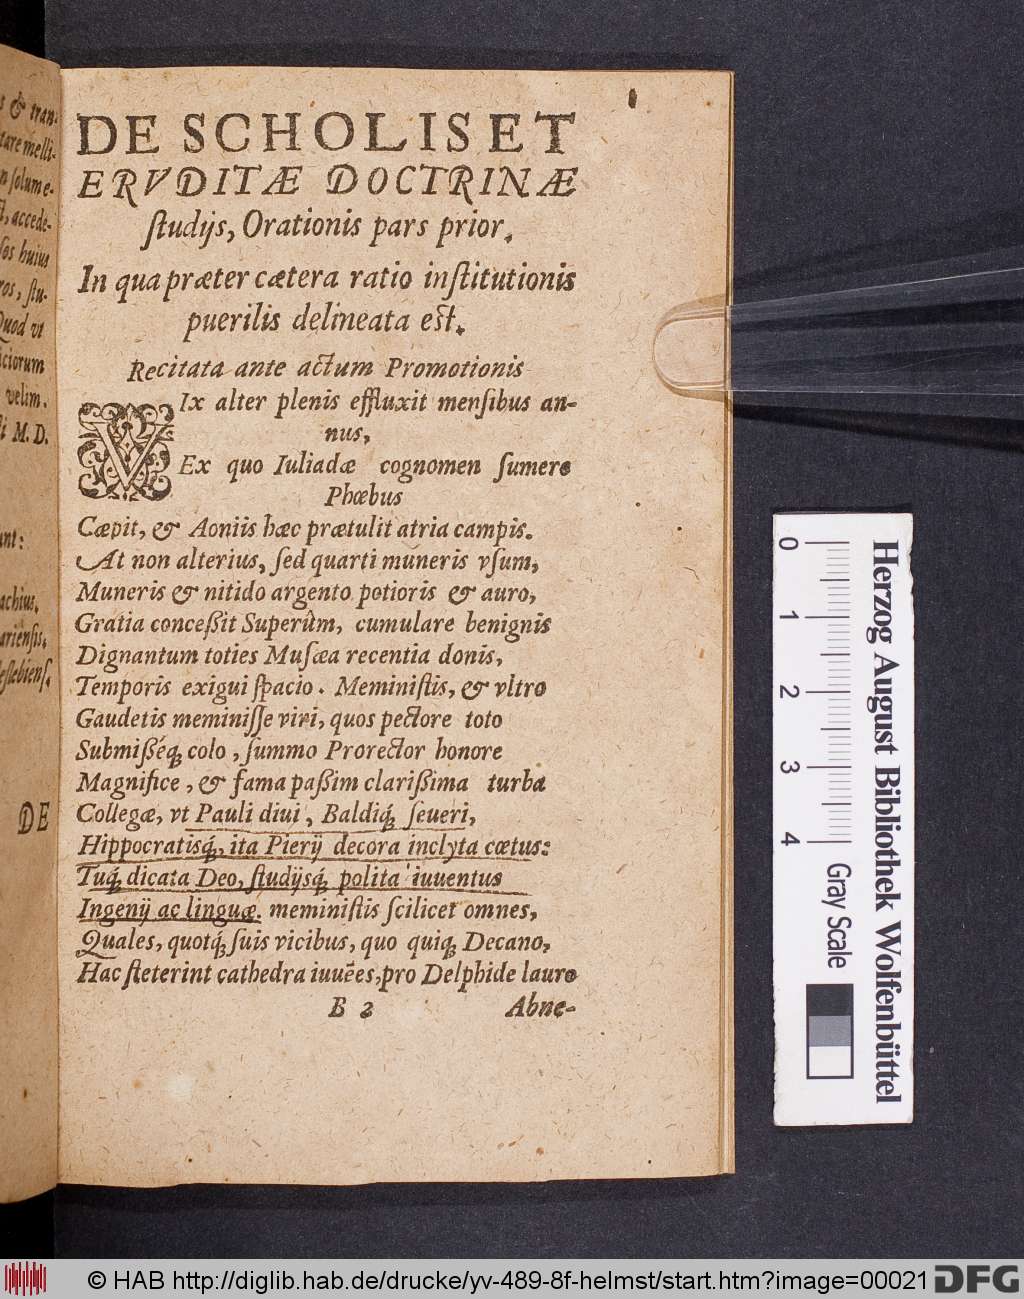 s & tran-
tare melli-
n ſolum e-
ſt, accede-
ſos huius
ros, ſtu-
Quod vt
iciorum
velim.
ſi M. D.
unt:
achius,
ariēnſis,
eſlebienſ.
DE
DE SCHOLIS ET
ERVDITÆ DOCTRINÆ
ſtudijs, Orationis pars prior.
In qua præter cætera ratio inſtitutionis
puerilis delineata eſt.
Recitata ante actum Promotionis
VIx alter plenis effluxit menſibus an-
nus,
Ex quo Iuliadæ cognomen ſumere
Phœbus
Cæpit, & Aoniis hæc prætulit atria campis.
At non alterius, ſed quarti muneris vſum,
Muneris & nitido argento potioris & auro,
Gratia conceßit Superûm, cumulare benignis
Dignantum toties Muſæa recentia donis,
Temporis exigui ſpacio. Meminiſtis, & vltro
Gaudetis meminiſſe viri, quos pectore toto
Submißéq; colo, ſummo Prorector honore
Magnifice, & fama paßim clarißima turba
Collegæ, vt Pauli diui, Baldiq́; ſeueri,
Hippocratisq́;, ita Pierij decora inclyta cœtus:
Tuq́; dicata Deo, ſtudijsq́; polita iuuentus
Ingenij ac linguæ. meminiſtis ſcilicet omnes,
Quales, quotq́; ſuis vicibus, quo quiq; Decano,
Hac ſteterint cathedra iuuēes, pro Delphide lauro
B 2 Abne-
Herzog August Bibliothek Wolfenbüttel
0 1 2 3 4 Gray Scale
© HAB http://diglib.hab.de/drucke/yv-489-8f-helmst/start.htm?image=00021 DFG